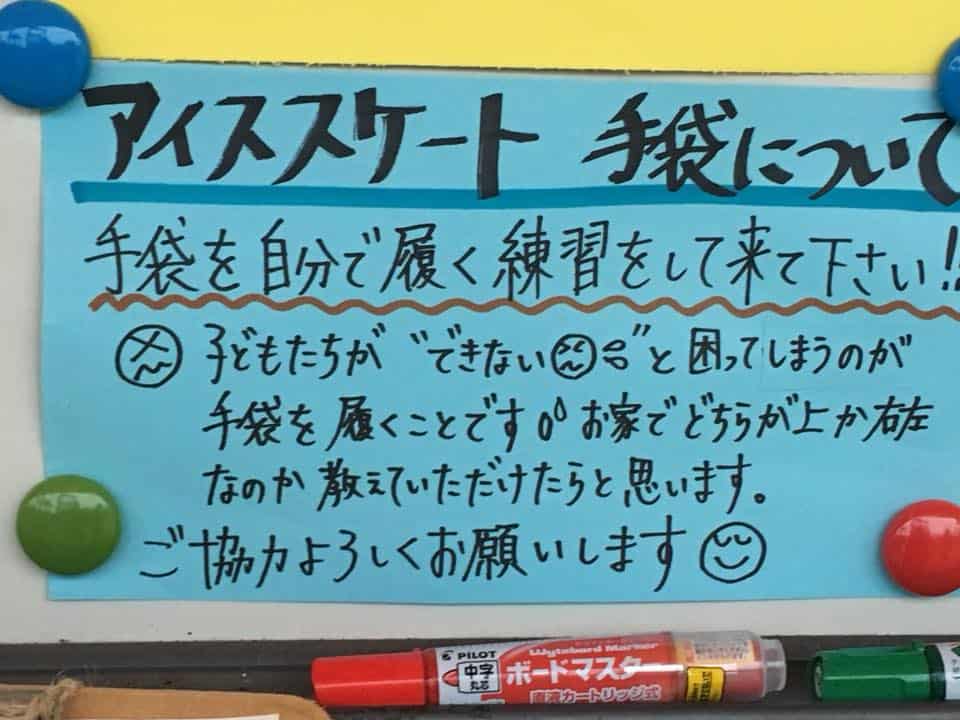 アイススケート 手袋について
手袋を自分で履く練習をして来て下さい!!
子どもたちが "できない" と困ってしまうのが
手袋を履くことです お家でどちらが上か右左
なのか教えていただけたらと思います。
ご協力よろしくお願いします
PILOT
中字
丸芯
Wyteboard Marker
ボードマスター
直液カートリッジ式